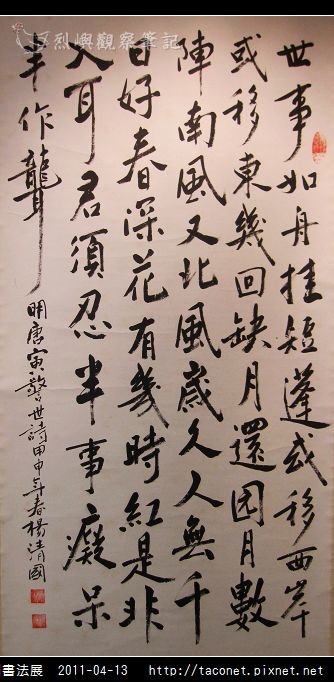 烈嶼觀察筆記
世事如舟挂短蓬或移西岸
或移東幾回缺月還园月數
陣南風又北風歲久人無千
日好春深花有幾時紅是非
入耳君須忍半事癡呆
半作聾
明唐寅警世詩甲申年春楊清國
書法展 2011-04-13 http://taconet.pixnet.net